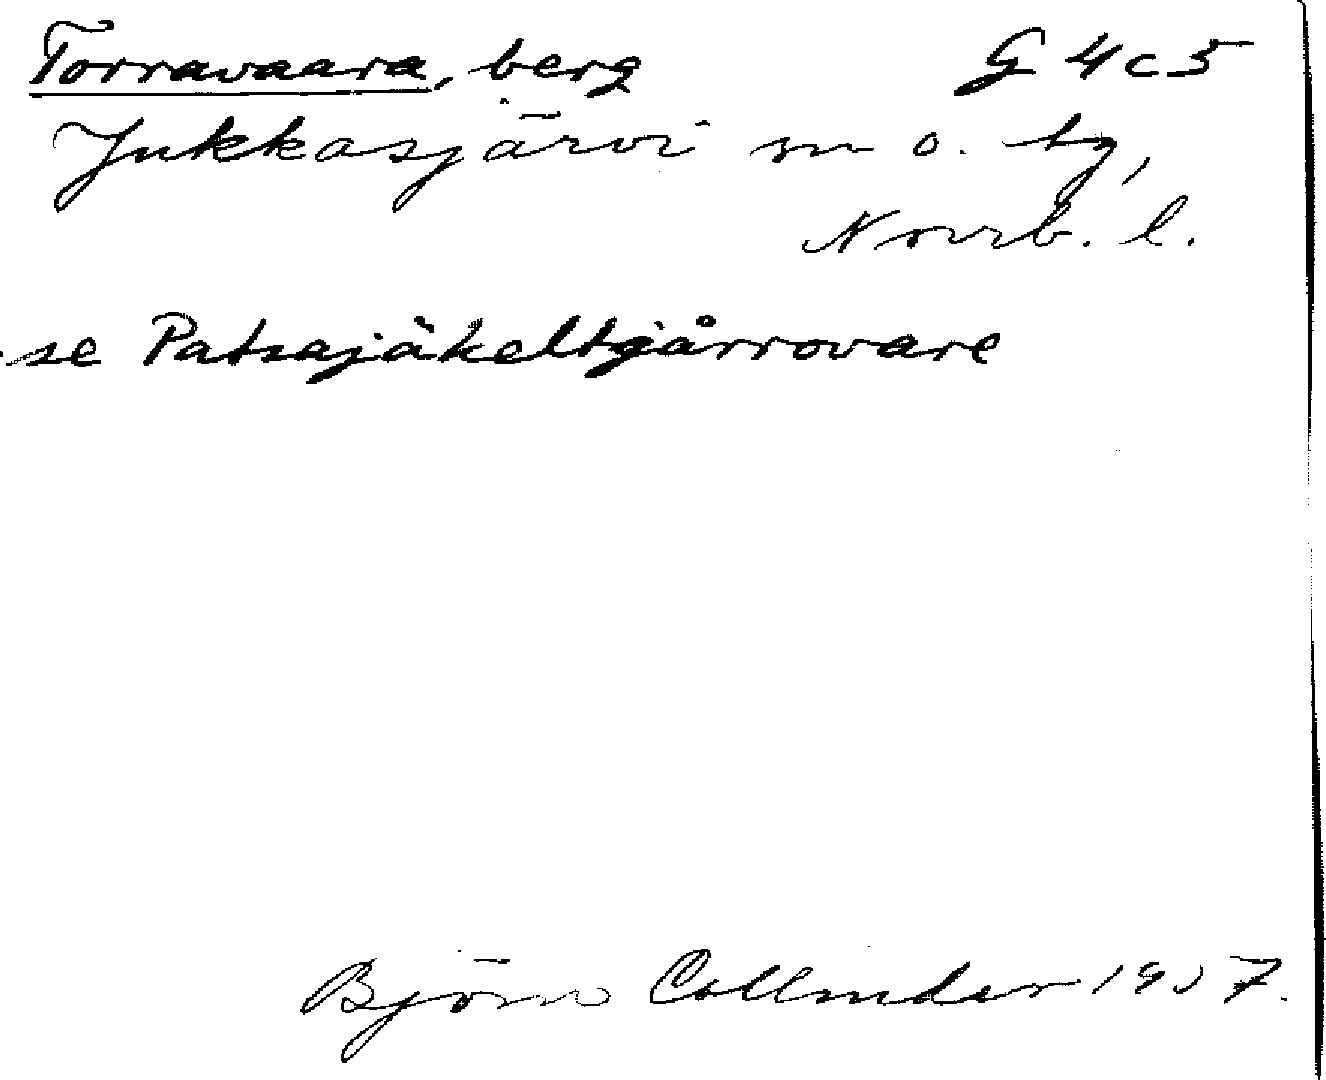 Torravaara, berg G 4 c 5
Jukkasjärvi sn o. tg,
Norrb. l.
se Patsajåkeltjårrovare
Björn Collinder 1957.